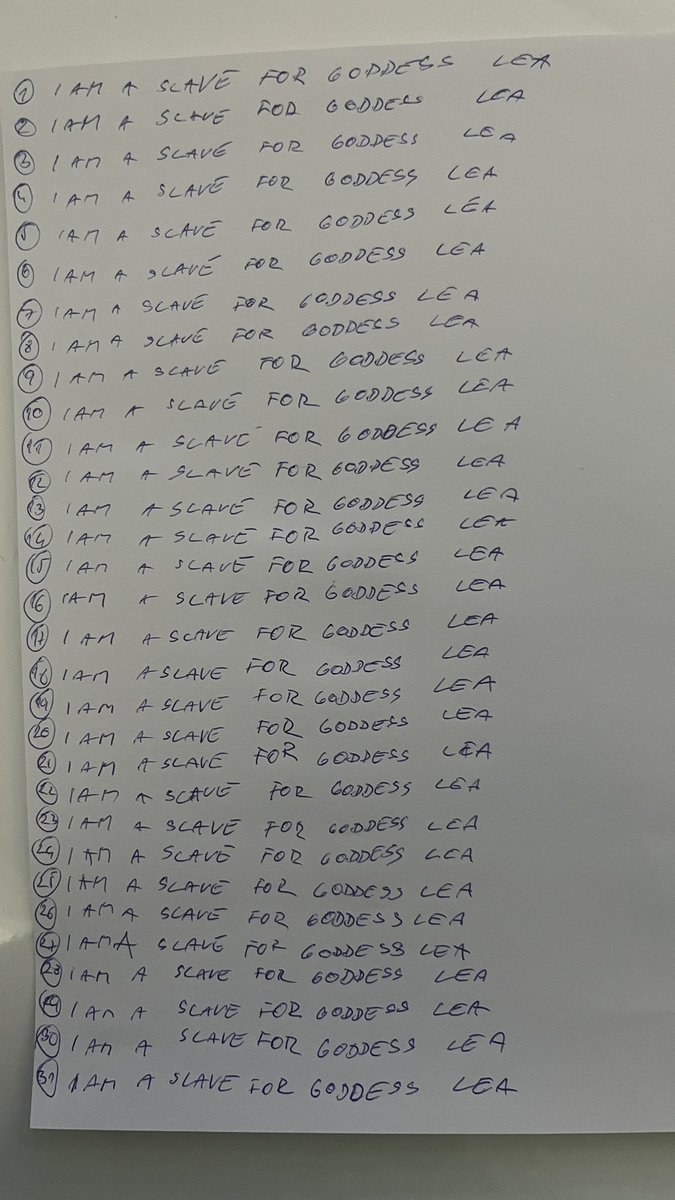 1 I AM A SLAVE FOR GODDESS LEA
2 I AM A SLAVE FOR GODDESS LEA
3 I AM A SLAVE FOR GODDESS LEA
4 I AM A SLAVE FOR GODDESS LEA
5 I AM A SLAVE FOR GODDESS LEA
6 I AM A SLAVE FOR GODDESS LEA
7 I AM A SLAVE FOR GODDESS LEA
8 I AM A SLAVE FOR GODDESS LEA
9 I AM A SLAVE FOR GODDESS LEA
10 I AM A SLAVE FOR GODDESS LEA
11 I AM A SLAVE FOR GODDESS LEA
12 I AM A SLAVE FOR GODDESS LEA
13 I AM A SLAVE FOR GODDESS LEA
14 I AM A SLAVE FOR GODDESS LEA
15 I AM A SLAVE FOR GODDESS LEA
16 I AM A SLAVE FOR GODDESS LEA
17 I AM A SLAVE FOR GODDESS LEA
18 I AM A SLAVE FOR GODDESS LEA
19 I AM A SLAVE FOR GODDESS LEA
20 I AM A SLAVE FOR GODDESS LEA
21 I AM A SLAVE FOR GODDESS LEA
22 I AM A SLAVE FOR GODDESS LEA
23 I AM A SLAVE FOR GODDESS LEA
24 I AM A SLAVE FOR GODDESS LEA
25 I AM A SLAVE FOR GODDESS LEA
26 I AM A SLAVE FOR GODDESS LEA
27 I AM A SLAVE FOR GODDESS LEA
28 I AM A SLAVE FOR GODDESS LEA
29 I AM A SLAVE FOR GODDESS LEA
30 I AM A SLAVE FOR GODDESS LEA
31 I AM A SLAVE FOR GODDESS LEA